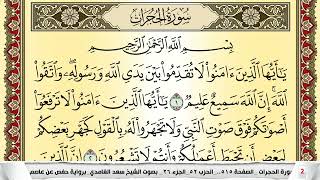 سُورَةُ الحُجُرَاتِ
بِسْمِ اللَّهِ الرَّحْمَٰنِ الرَّحِيمِ
يَٰٓأَيُّهَا ٱلَّذِينَ ءَامَنُوا۟ لَا تُقَدِّمُوا۟ بَيْنَ يَدَىِ ٱللَّهِ وَرَسُولِهِۦ ۖ وَٱتَّقُوا۟
ٱللَّهَ ۚ إِنَّ ٱللَّهَ سَمِيعٌ عَلِيمٌ ١ يَٰٓأَيُّهَا ٱلَّذِينَ ءَامَنُوا۟ لَا تَرْفَعُوٓا۟
أَصْوَٰتَكُمْ فَوْقَ صَوْتِ ٱلنَّبِىِّ وَلَا تَجْهَرُوا۟ لَهُۥ بِٱلْقَوْلِ كَجَهْرِ بَعْضِكُمْ
لِبَعْضٍ أَن تَحْبَطَ أَعْمَٰلُكُمْ وَأَنتُمْ لَا تَشْعُرُونَ ٢ إِنَّ ٱلَّذِينَ
ورة الحجرات .. ٥١٥ .. الحزب ٥٢ .. الجزء ٢٦ .. بصوت الشيخ سعد الغامدي .. برواية حفص عن عاصم 2